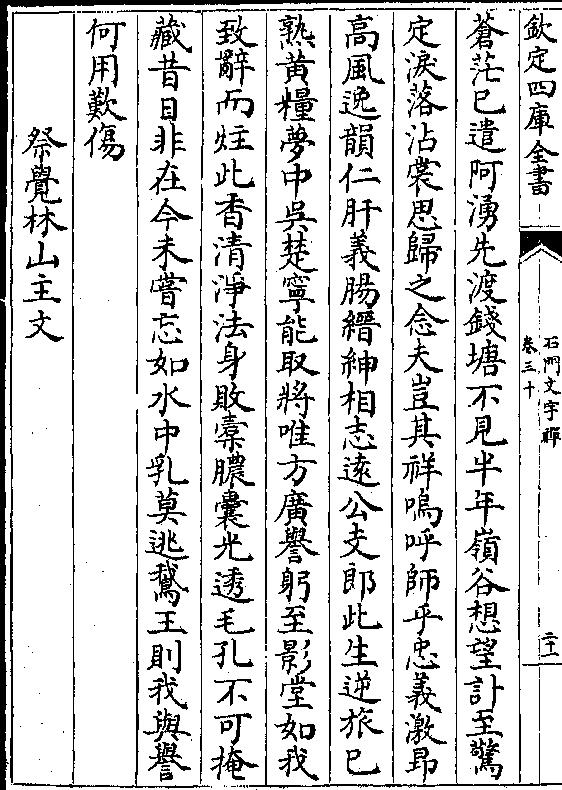 欽定四庫全書
石門文字禪
卷三十
二十一
蒼茫已遣阿湧先渡錢塘不見半年嶺谷想望計至驚
定淚落沾裳思歸之念夫豈其祥嗚呼師乎忠義激昂
高風逸韻仁肝義腸縉紳相志遠公支郎此生逆旅已
熟黄糧夢中吳楚寧能取將唯方廣譽躬至影堂如我
致辭而炷此香清淨法身敗橐膿囊光透毛孔不可掩
藏昔日非在今未嘗忘如水中乳莫逃鵞王則我與譽
何用歎傷
祭覺林山主文